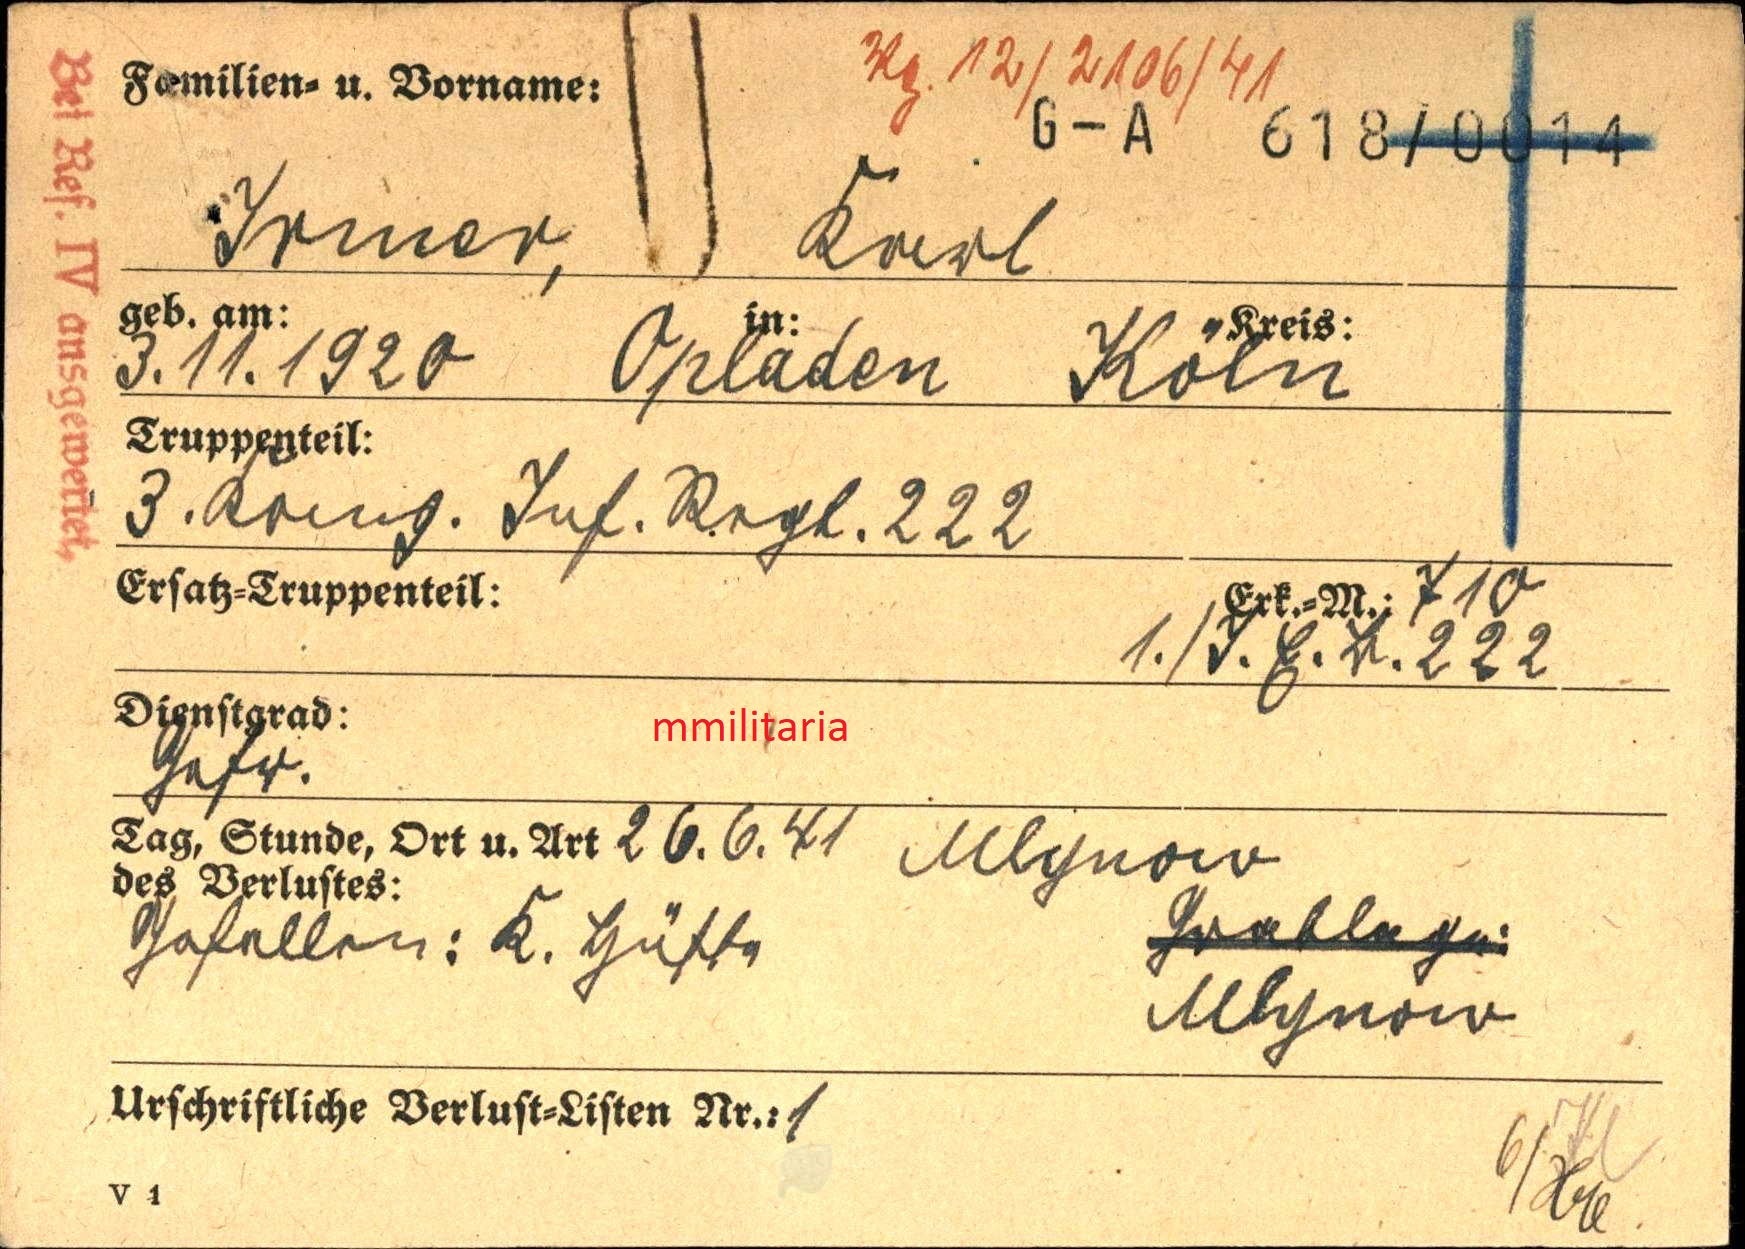 Bei Ref. IV ausgewertet,
Familien- u. Vorname:
12/2106/41
G-A 618/0014
Irmer, Karl
geb. am: in: Kreis:
3.11.1920 Opladen Köln
Truppenteil:
3. Komp. Inf. Regt. 222
Ersatz-Truppenteil:
Erk.-M.: 710
1./I.E.B. 222
Dienstgrad:
mmilitaria
Gefr.
Tag, Stunde, Ort u. Art 26.6.41 Mlynow
des Verlustes:
Gefallen: K. Hüfte
Grablage:
Mlynow
Urschriftliche Verlust-Listen Nr.: 1
V 1